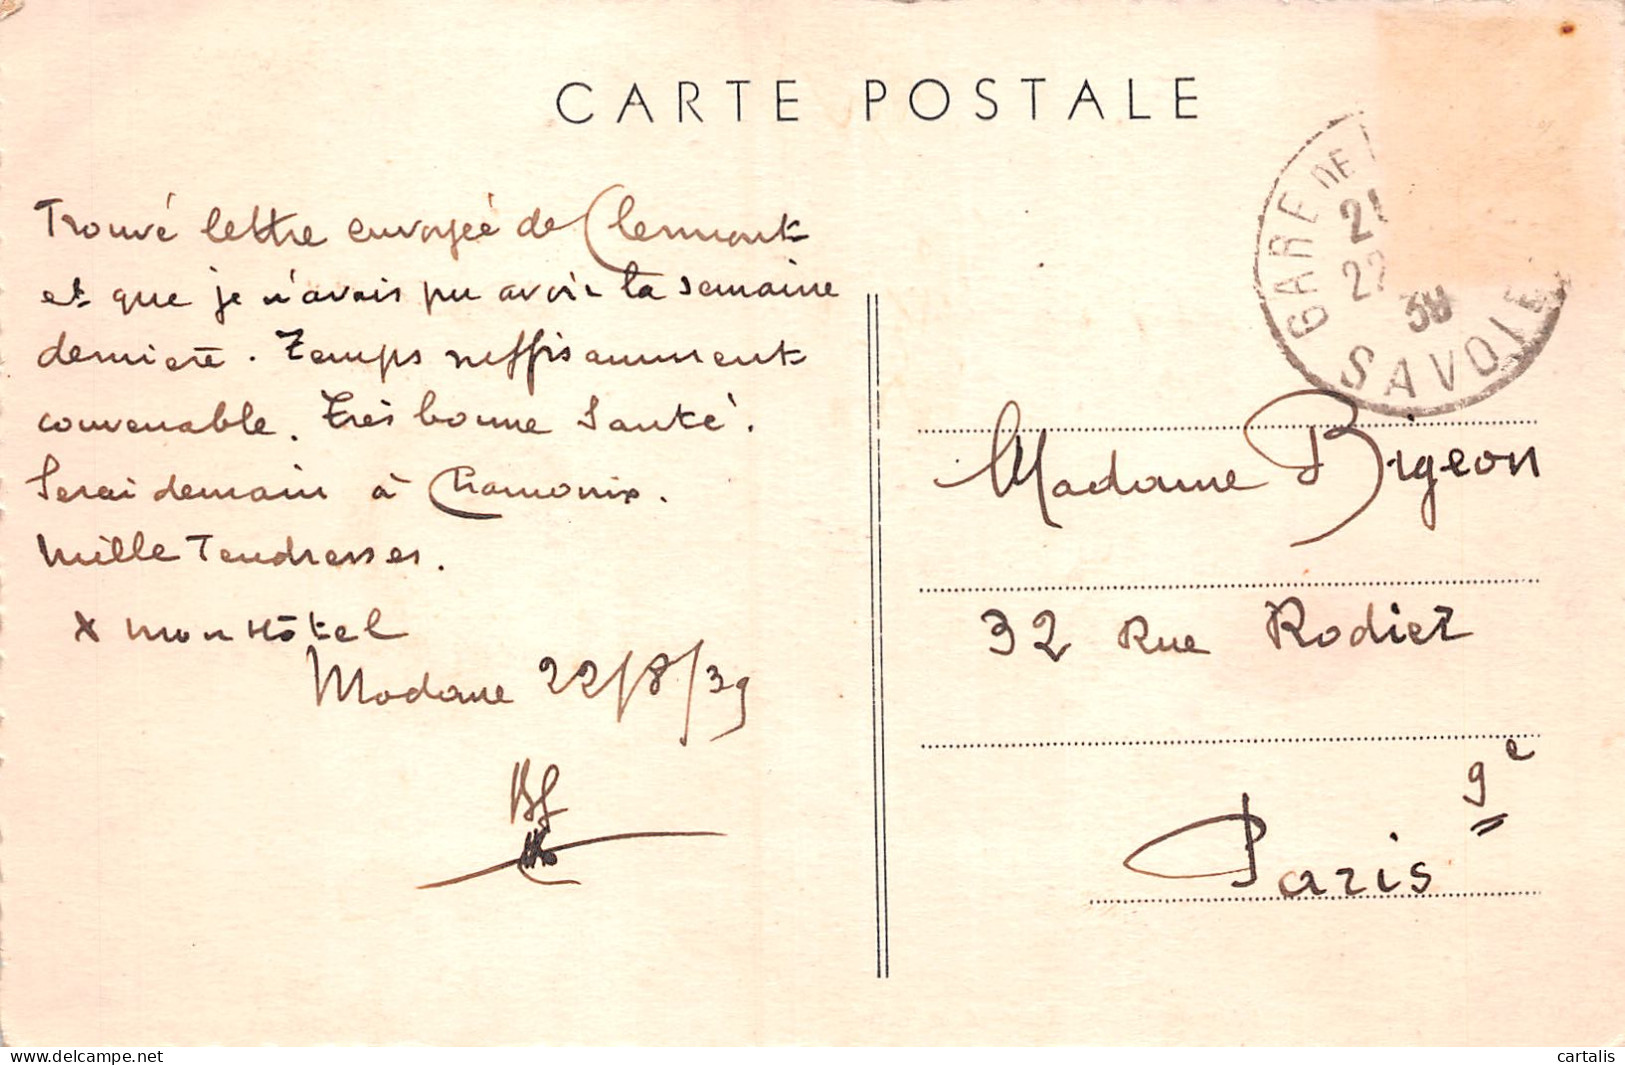 CARTE POSTALE
GARE DE
21
22
38
SAVOIE
Trouvé lettre envoyée de Clermont
et que je n'avais pu avoir la semaine
dernière. Temps suffisamment
convenable. Très bonne Santé.
Serai demain à Chamonix.
Mille Tendresses.
X mon Hôtel
Modane 22/8/39
Madame Bigeon
32 Rue Rodier
Paris 9e
delcampe.net
cartalis